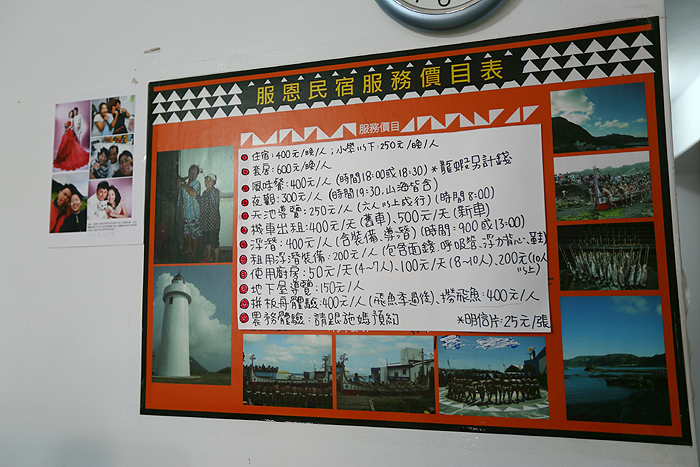 服恩民宿服務價目表
服務價目
住宿:400元/晚/人;小學以下:250元/晚/人
套房:600元/晚/人
風味餐:400元/人(時間18:00或18:30)*龍蝦另計錢
夜觀:300元/人(時間19:30,山海皆含)
天池導覽:250元/人(六人以上成行)(時間8:00)
機車出租:400元/天(舊車)、500元/天(新車)
浮潛:400元/人(含裝備、導潛)(時間=9:00或13:00)
租用浮潛裝備:200元/人(包含面鏡、呼吸管、浮力背心、鞋)
使用廚房:50元/天(4~7人)、100元/天(8~10人)、200元(10人以上)
地下屋導覽:150元/人
拼板舟體驗:400元/人(飛魚季過後)、撈飛魚:400元/人
農務體驗:請跟施媽預約 *明信片:25元/張